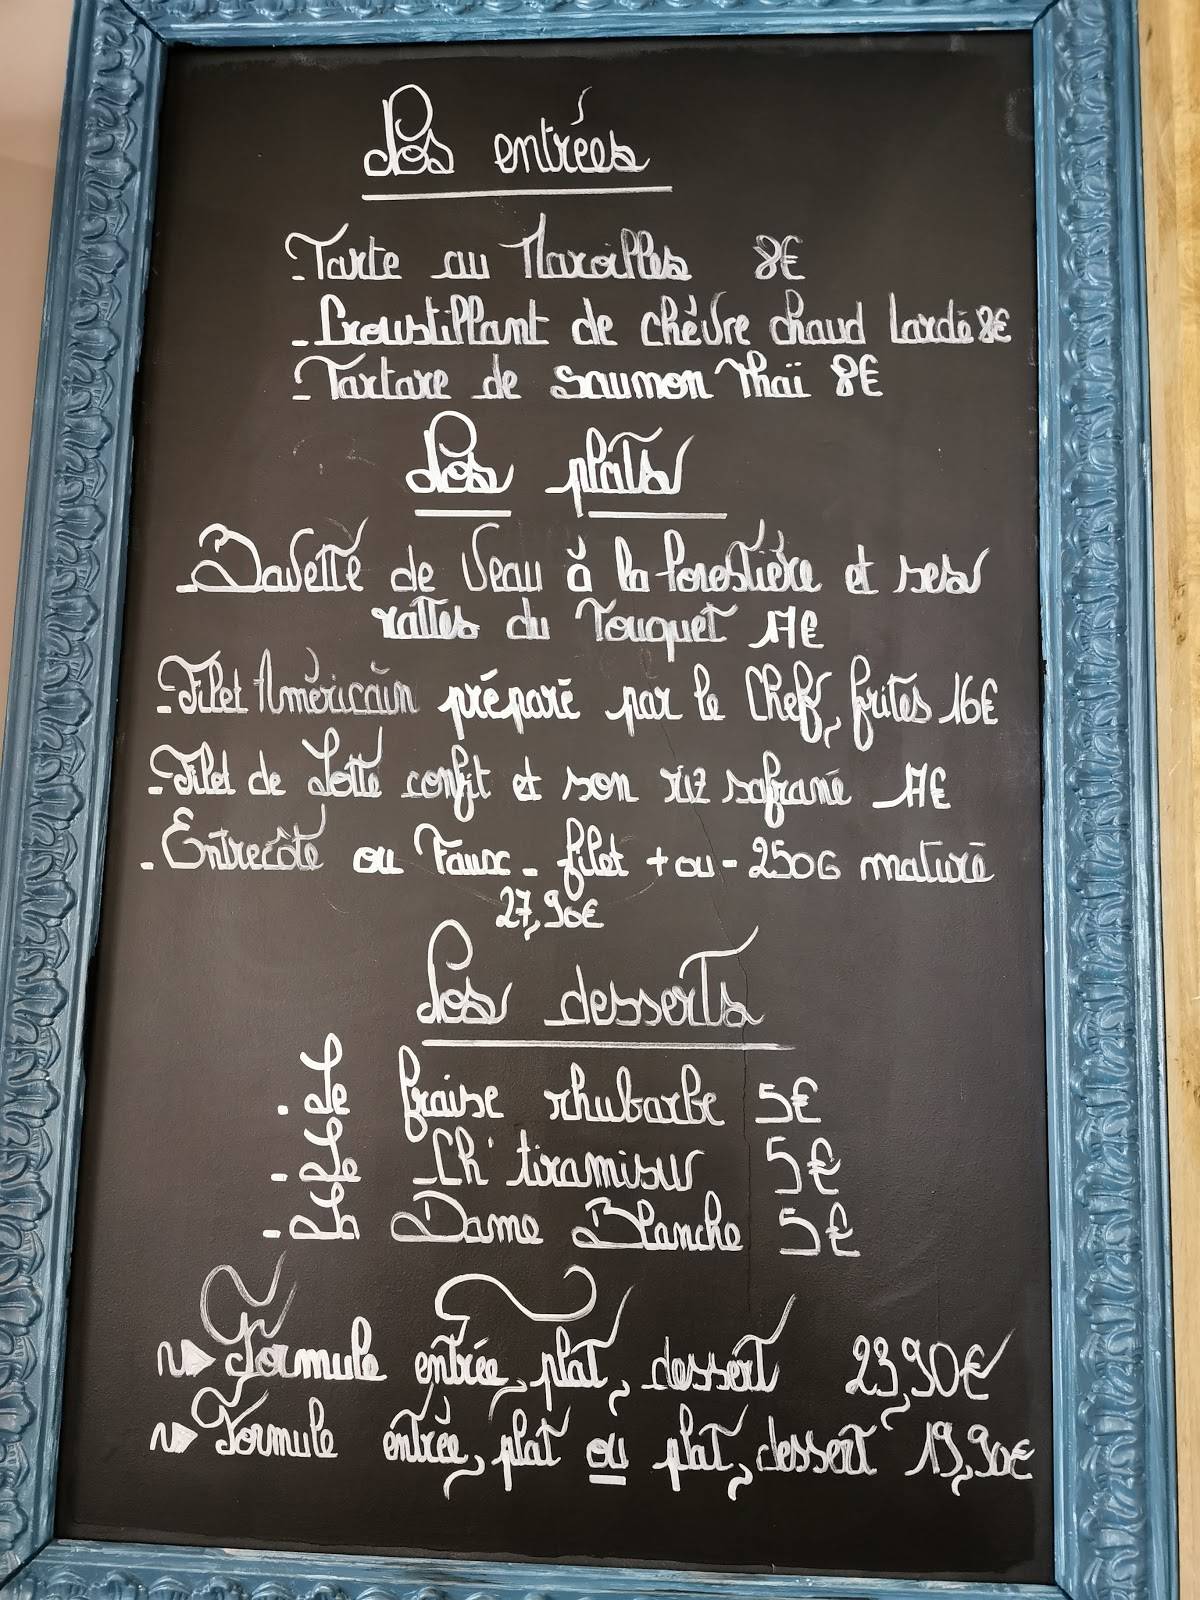 Les entrées
- Tarte au Maroilles 8€
- Croustillant de chèvre chaud Lardé 8€
- Tartare de saumon Thaï 8€
Les plats
- Bavette de Veau à la forestière et ses
rattes du Touquet 17€
- Filet Américain préparé par le Chef, frites 16€
- Filet de Lotte confit et son riz safrané 17€
- Entrecôte ou Faux-filet + ou - 250G maturé
27,90€
Les desserts
- Le fraise rhubarbe 5€
- Le Ch'tiramisu 5€
- La Dame Blanche 5€
Formule entrée, plat, dessert 23,90€
Formule entrée, plat ou plat, dessert 19,90€